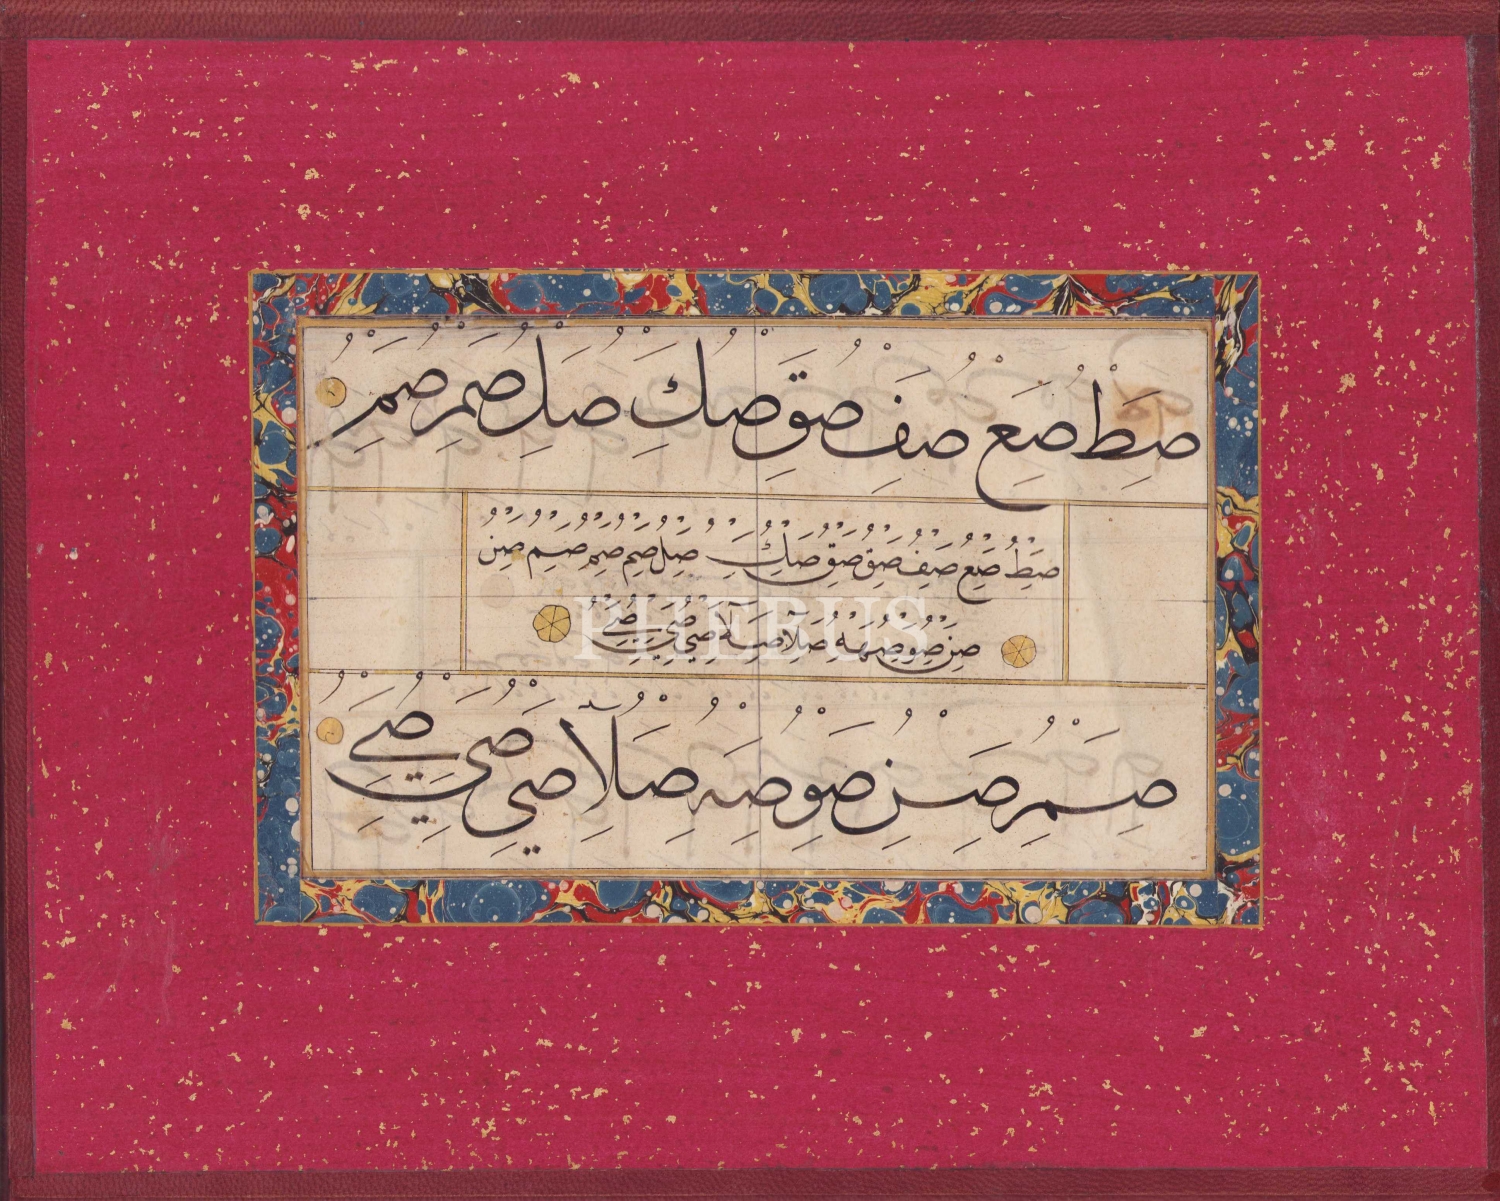 صط صع صف صق صك صل صم صم
صط صع صف صق صق صك صل صم صم صم صن
صن صو صه صلا صے صے
PHEBUS
صم صن صو صه صلا صى صى صے